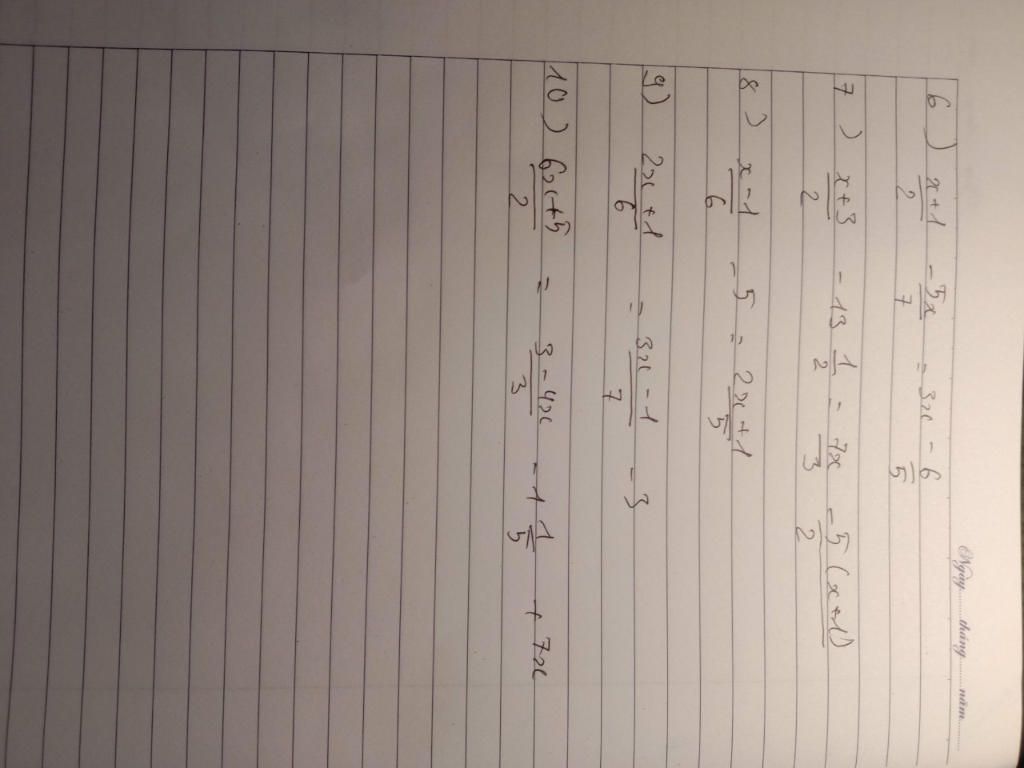 Ngày........tháng........năm........
6) \frac{x+1}{2} - \frac{5x}{7} = 3x - \frac{6}{5}
7) \frac{x+3}{2} - 13\frac{1}{2} = \frac{7x}{3} - \frac{5(x+1)}{2}
8) \frac{x-1}{6} - 5 = \frac{2x+1}{5}
9) \frac{2x+1}{6} = \frac{3x-1}{7} - 3
10) \frac{6x+5}{2} = \frac{3-4x}{3} - 1\frac{1}{5} + 7x